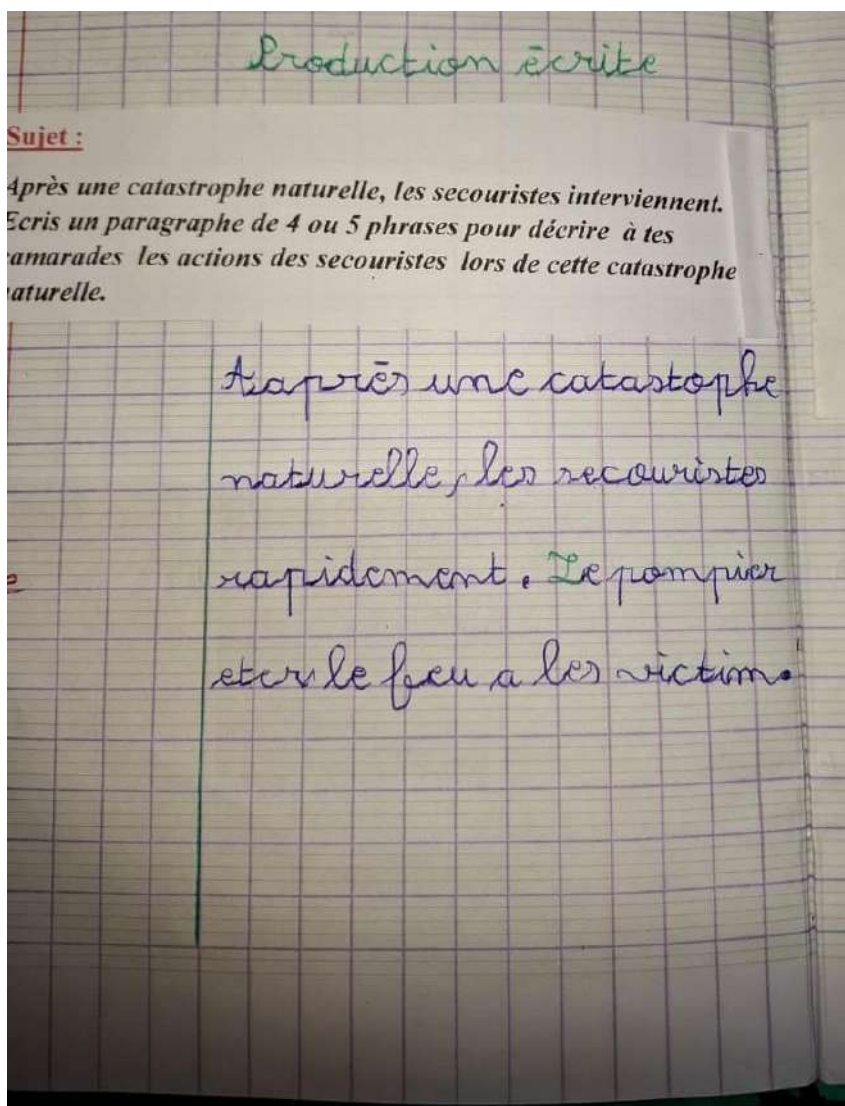 Production écrite
Sujet :
Après une catastrophe naturelle, les secouristes interviennent.
Ecris un paragraphe de 4 ou 5 phrases pour décrire à tes
amarades les actions des secouristes lors de cette catastrophe
aturelle.
après une catastophe
naturelle, les secouristes
rapidement. Le pompier
le feu a les victim.